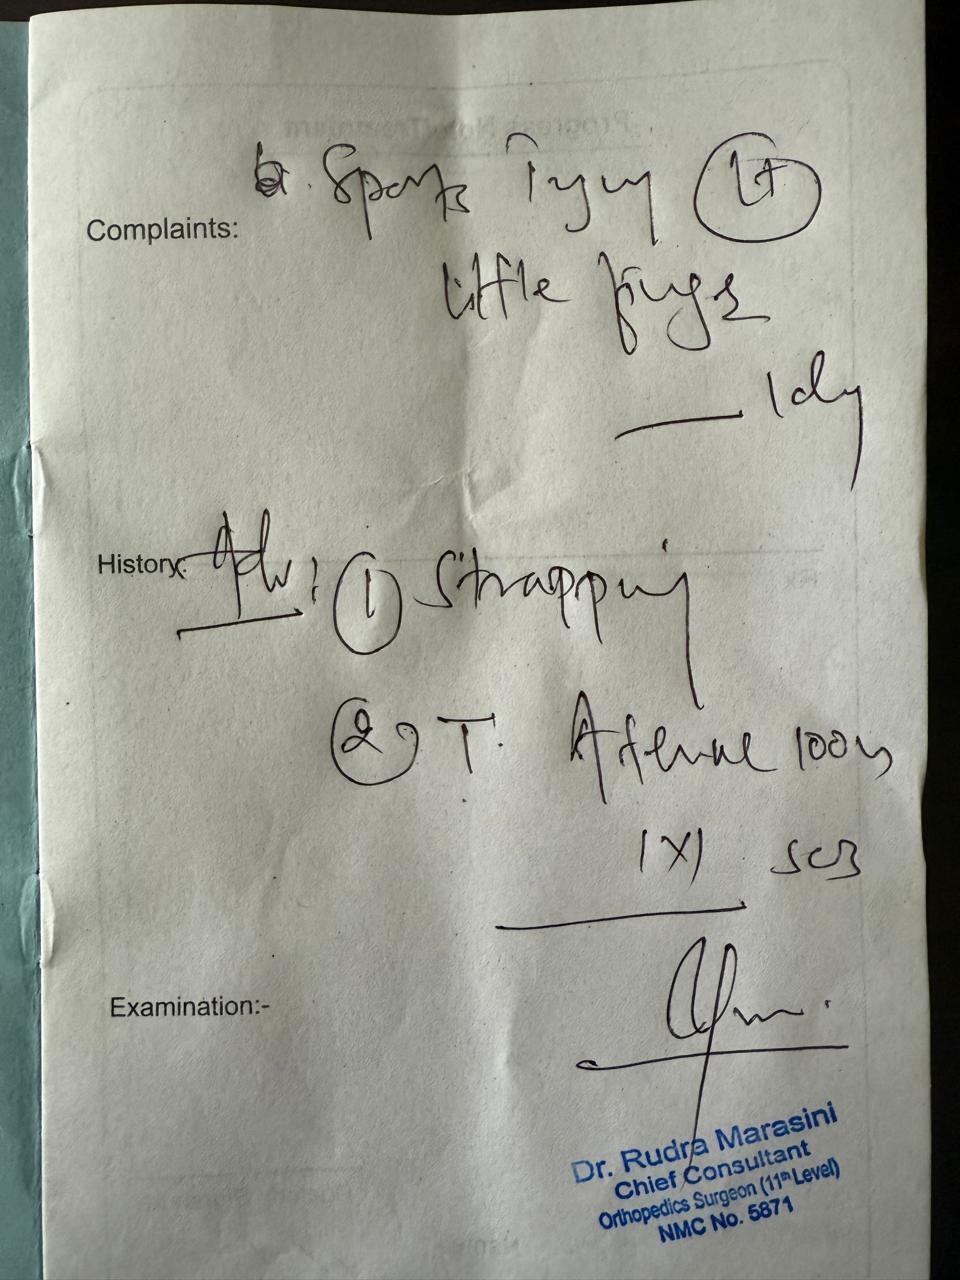 Sports Injury Lt
Complaints:
little finger
1 day
History: Adv: 1 Strapping
2 T.
1X1
Examination:-
Dr. Rudra Marasini
Chief Consultant
Orthopedics Surgeon (11th Level)
NMC No. 5871